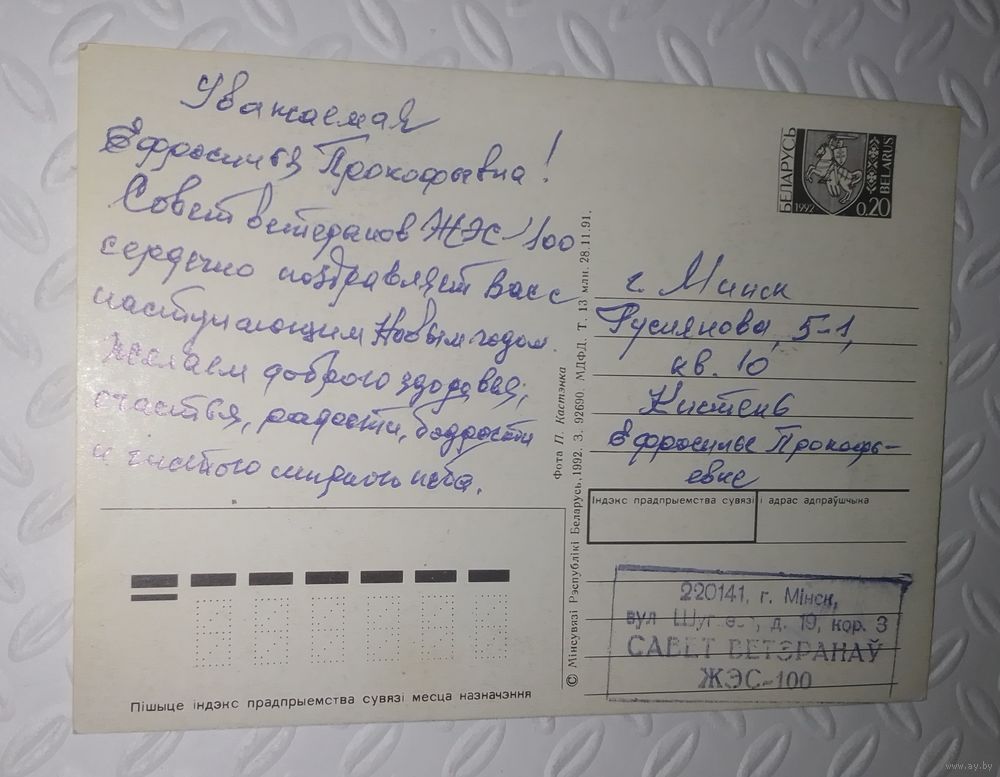 Уважаемая
Ефросинья Прокофьевна!
Совет ветеранов ЖЭС-100
сердечно поздравляет Вас с
наступающим Новым годом.
Желаем доброго здоровья,
счастья, радости, бодрости
и чистого мирного неба.
БЕЛАРУСЬ
1992
0.20
BELARUS
г. Минск
Руссиянова, 5-1,
кв. 10
Кистень
Ефросинье Прокофь-
евне
Фота П. Кастэнка
© Мінсувязі Рэспублікі Беларусь, 1992. З. 92690. МДФД. Т. 13 млн. 28.11.91.
Індэкс прадпрыемства сувязі і адрас адпраўшчыка
220141, г. Мінск,
вул. д. 19, кор. 3
САВЕТ ВЕТЭРАНАЎ
ЖЭС-100
Пішыце індэкс прадпрыемства сувязі месца назначэння
www.ay.by